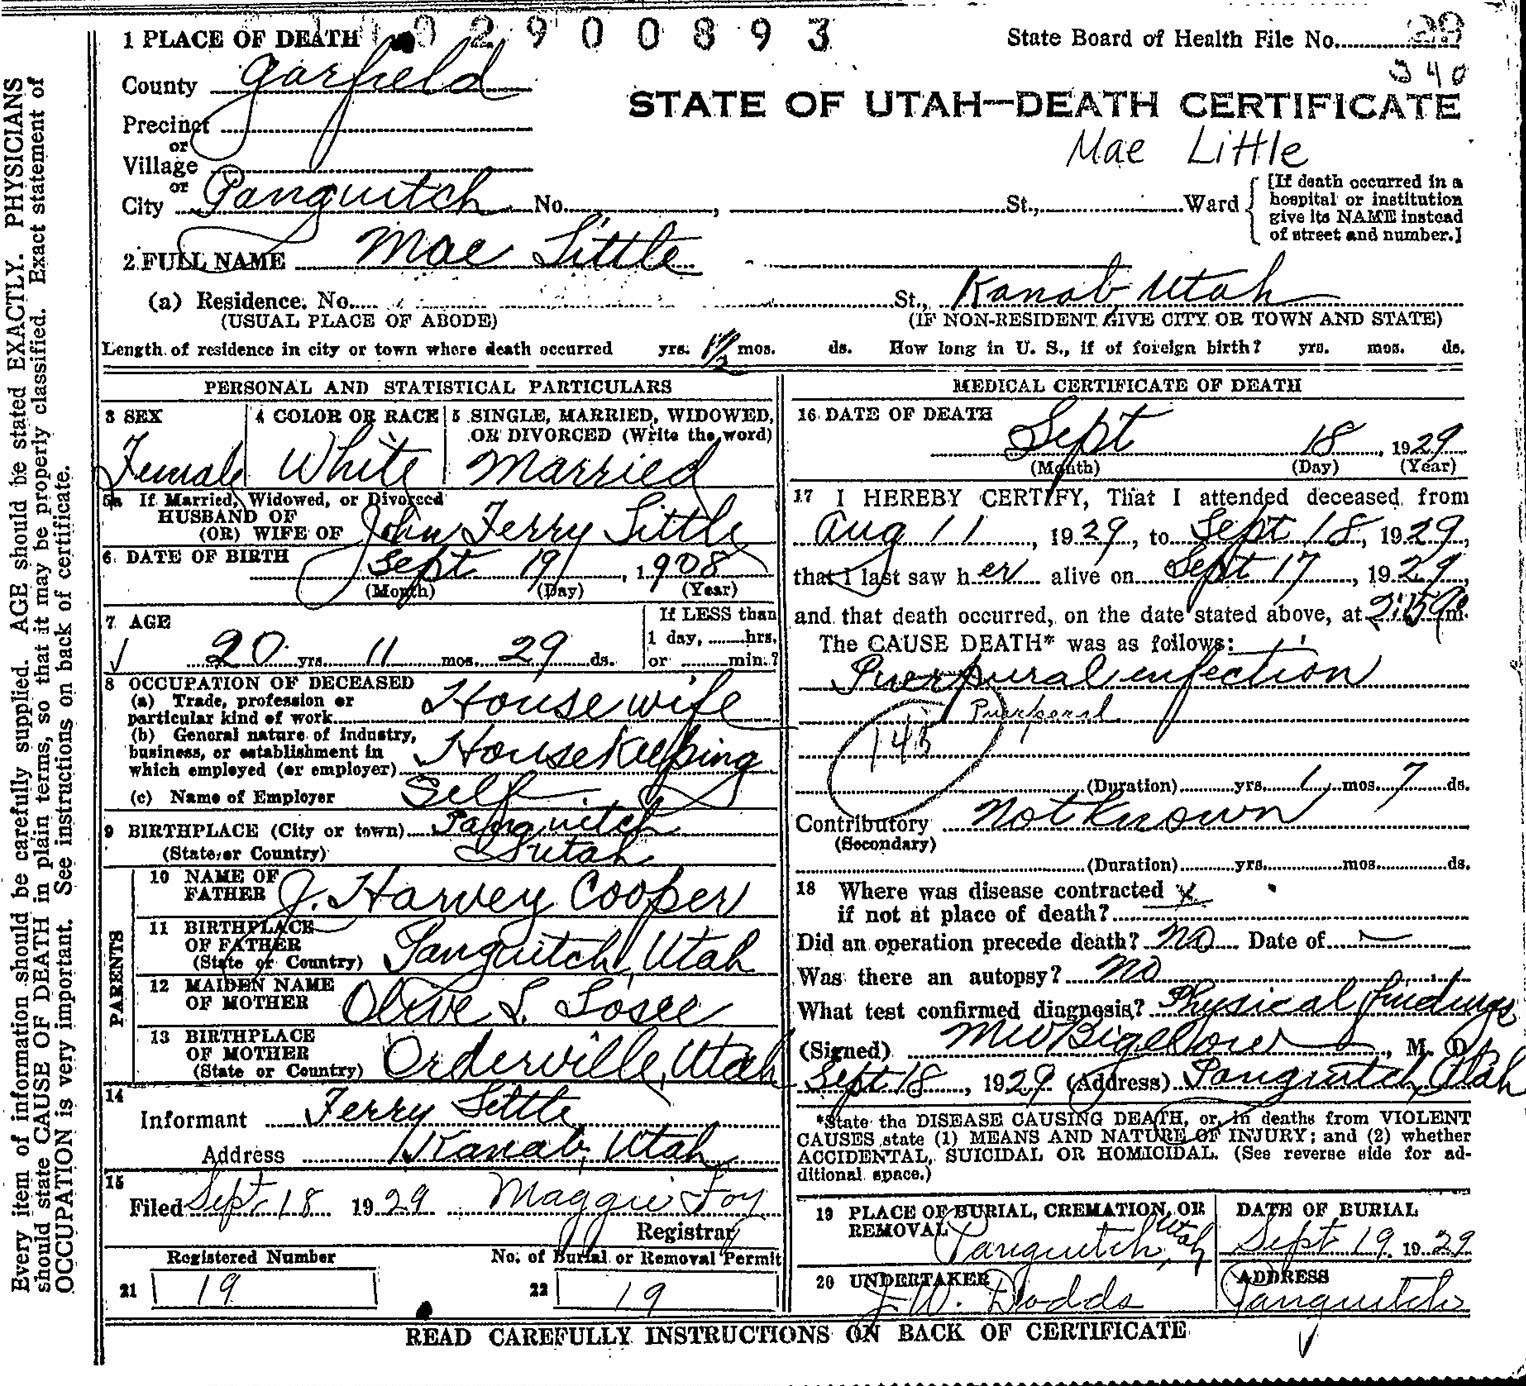 1 PLACE OF DEATH 02900893 State Board of Health File No.
340
County Garfield
STATE OF UTAH—DEATH CERTIFICATE
Precinct
or
Mae Little
Village
or
City Panguitch No. , St., Ward
[If death occurred in a
hospital or institution
give its NAME instead
of street and number.]
2 FULL NAME Mae Little
(a) Residence. No. St., Kanab, Utah
(USUAL PLACE OF ABODE) (IF NON-RESIDENT GIVE CITY OR TOWN AND STATE)
Length of residence in city or town where death occurred yrs. 1 1/2 mos. ds. How long in U. S., if of foreign birth? yrs. mos. ds.
PERSONAL AND STATISTICAL PARTICULARS
3 SEX 4 COLOR OR RACE 5 SINGLE, MARRIED, WIDOWED,
OR DIVORCED (Write the word)
Female White Married
5a If Married, Widowed, or Divorced
HUSBAND OF
(OR) WIFE OF John Ferry Little
6 DATE OF BIRTH Sept 19, 1908
(Month) (Day) (Year)
7 AGE If LESS than
1 day, hrs.
20 yrs. 11 mos. 29 ds. or min.?
8 OCCUPATION OF DECEASED
(a) Trade, profession or
particular kind of work Housewife
(b) General nature of industry,
business, or establishment in
which employed (or employer) Housekeeping
(c) Name of Employer Self
9 BIRTHPLACE (City or town) Panguitch
(State or Country) Utah
PARENTS
10 NAME OF
FATHER J. Harvey Cooper
11 BIRTHPLACE
OF FATHER
(State or Country) Panguitch, Utah
12 MAIDEN NAME
OF MOTHER Olive L. Losee
13 BIRTHPLACE
OF MOTHER
(State or Country) Orderville, Utah
14
Informant Ferry Little
Address Kanab, Utah
15
Filed Sept 18 1929 Maggie Foy
Registrar
Registered Number No. of Burial or Removal Permit
21 19 22 19
MEDICAL CERTIFICATE OF DEATH
16 DATE OF DEATH
Sept 18, 1929
(Month) (Day) (Year)
17 I HEREBY CERTIFY, That I attended deceased from
Aug 11, 1929, to Sept 18, 1929,
that I last saw her alive on Sept 17, 1929,
and that death occurred, on the date stated above, at m.
The CAUSE DEATH* was as follows:
Puerpural infection
Puerperal
145
(Duration) yrs. 1 mos. 7 ds.
Contributory not known
(Secondary)
(Duration) yrs. mos. ds.
18 Where was disease contracted x
if not at place of death?
Did an operation precede death? no Date of —
Was there an autopsy? no
What test confirmed diagnosis? Physical findings
(Signed) M W Bigelow, M. D.
Sept 18, 1929 (Address) Panguitch, Utah
*State the DISEASE CAUSING DEATH, or, in deaths from VIOLENT
CAUSES state (1) MEANS AND NATURE OF INJURY; and (2) whether
ACCIDENTAL, SUICIDAL OR HOMICIDAL. (See reverse side for ad-
ditional space.)
19 PLACE OF BURIAL, CREMATION, OR
REMOVAL Panguitch, Utah
DATE OF BURIAL
Sept 19, 1929
20 UNDERTAKER
J. W. Dodds
ADDRESS
Panguitch
READ CAREFULLY INSTRUCTIONS ON BACK OF CERTIFICATE
Every item of information should be carefully supplied. AGE should be stated EXACTLY. PHYSICIANS
should state CAUSE OF DEATH in plain terms, so that it may be properly classified. Exact statement of
OCCUPATION is very important. See instructions on back of certificate.